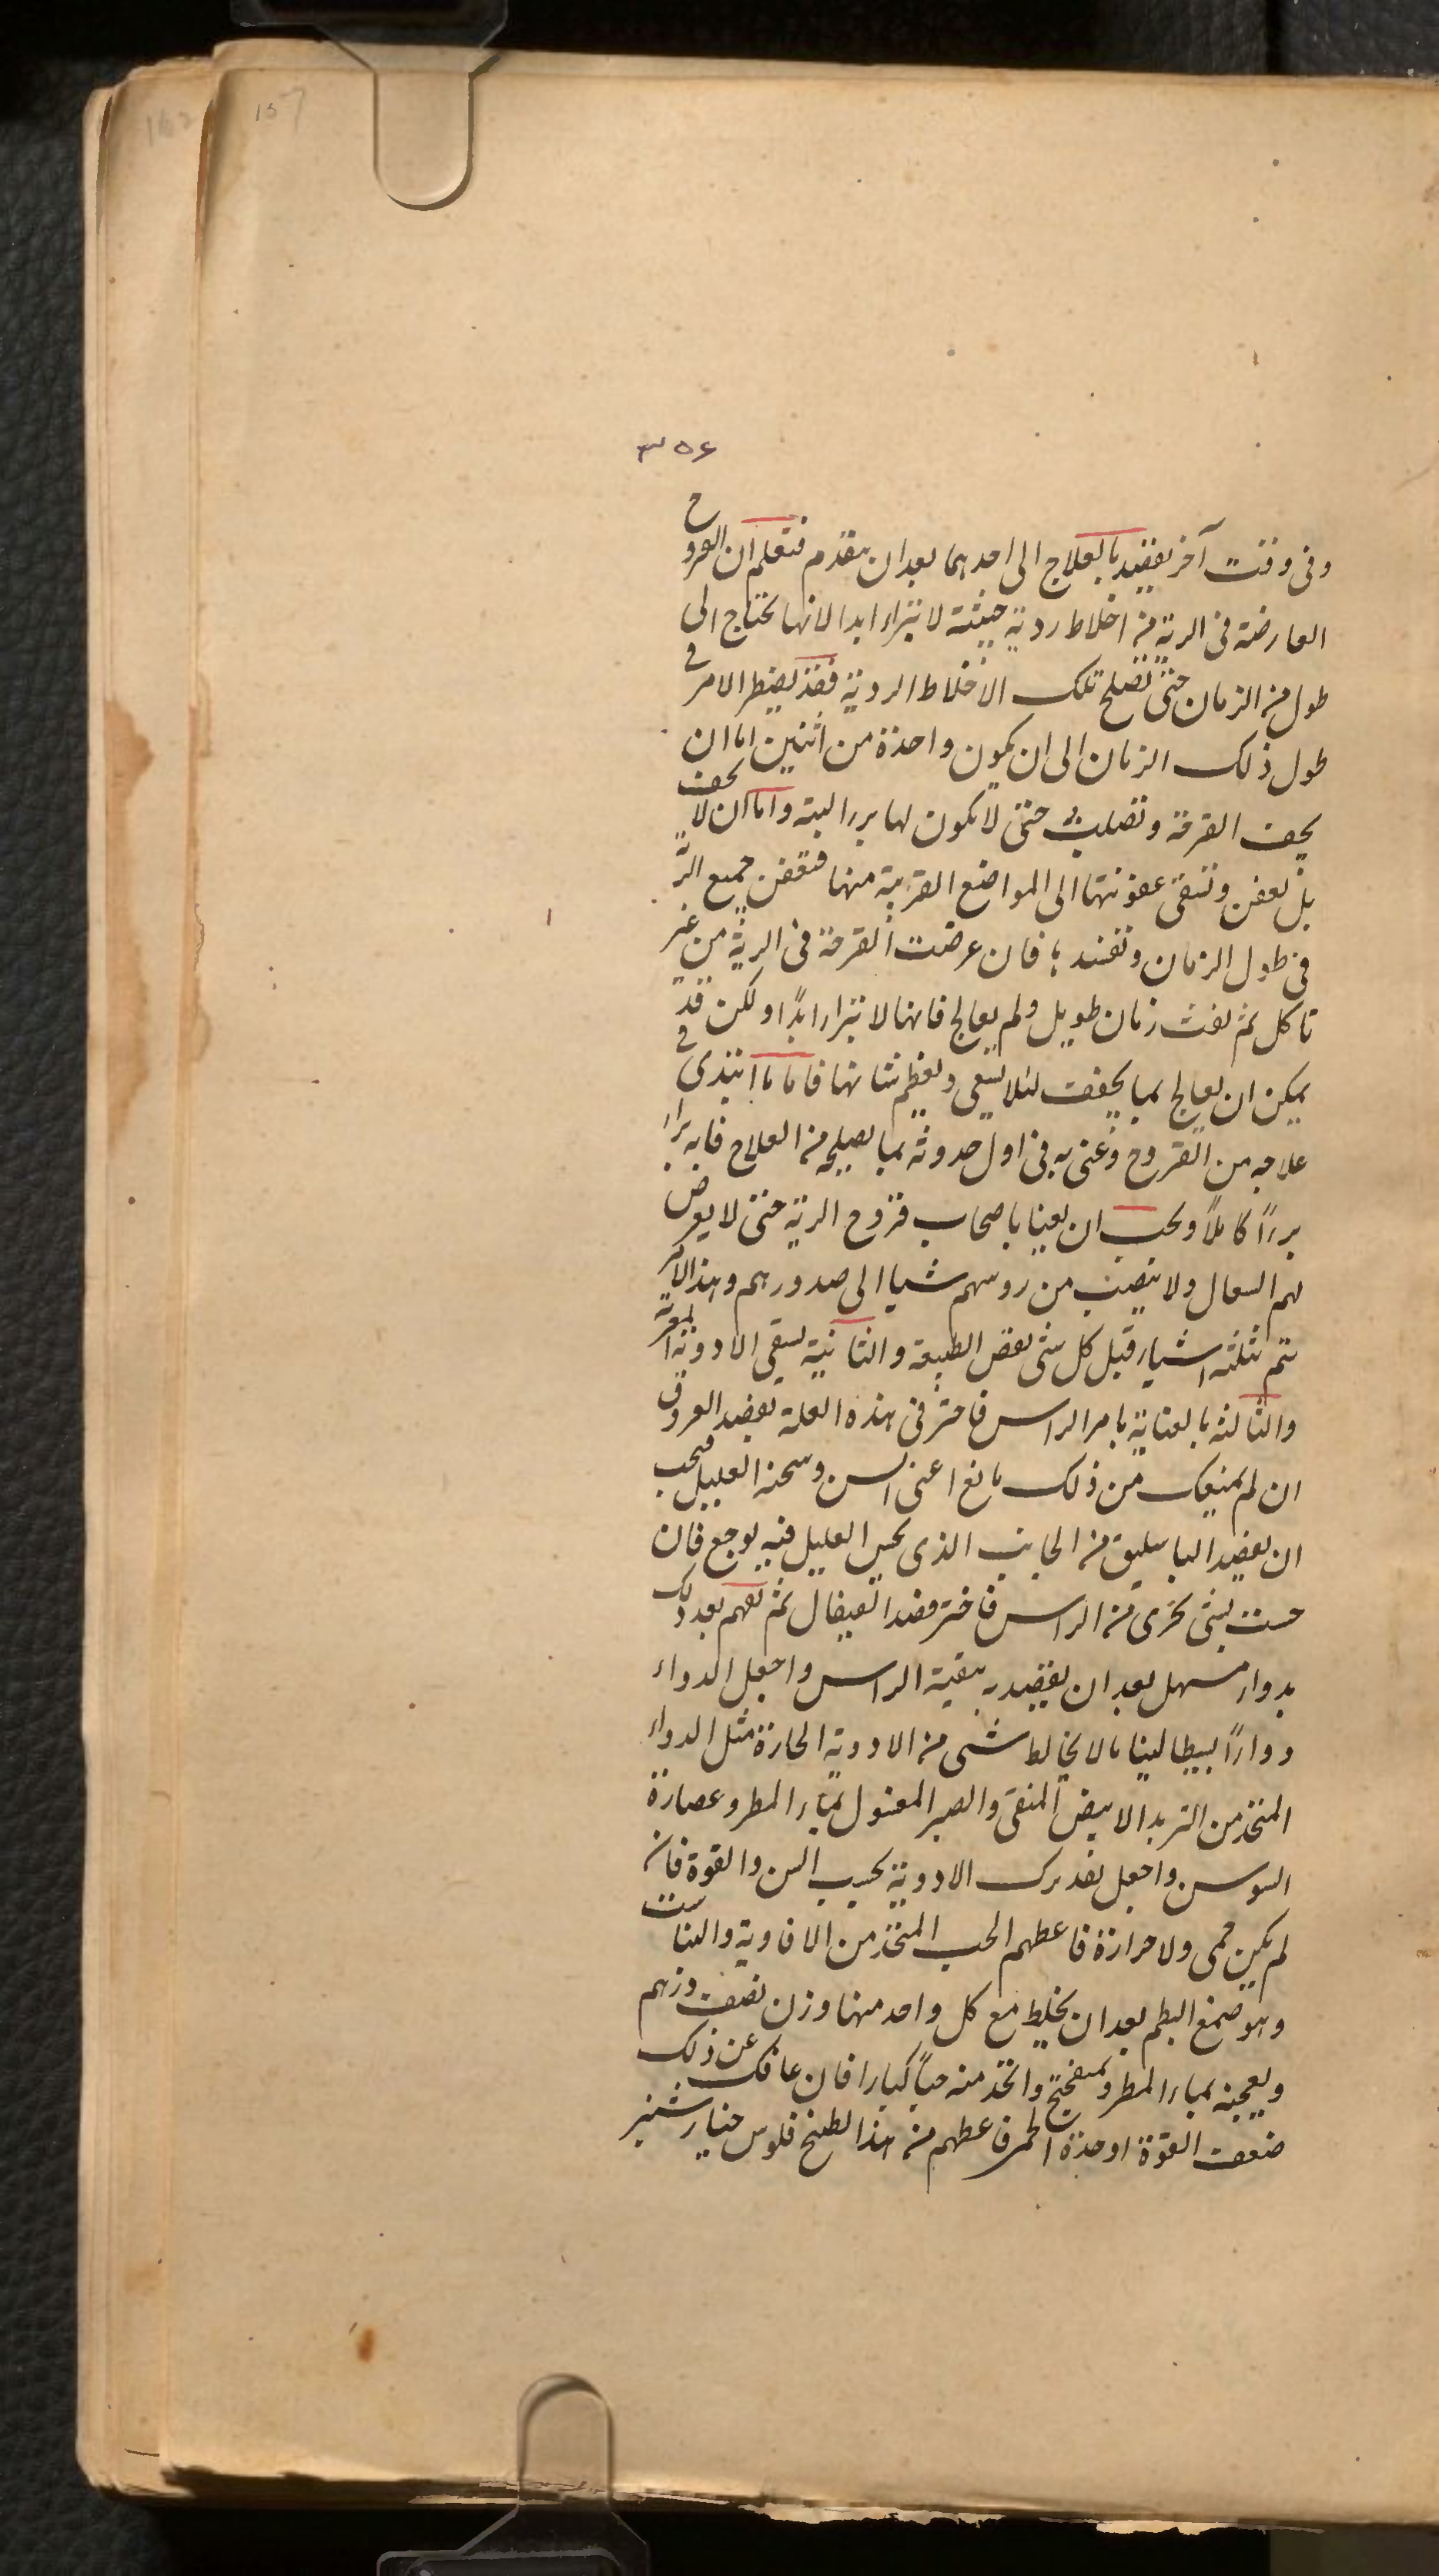 157
٣٥٤
وفى وقت آخر يقصد بالعلاج الى احدهما بعد ان يتقدم فتعلم ان القروح
العارضة فى الرية من اخلاط ردية خبيثة لا تبراء ابدا لانها تحتاج الى
طول من الزمان حتى تصلح تلك الاخلاط الردية فقد يضطر الامر فى
طول ذلك الزمان الى ان يكون واحدة من اثنين اما ان
يجف القرحة وتصلب حتى لا يكون لها برء البتة واما ان لا يجف
بل يعفن وتبقى عفونتها الى المواضع القريبة منها فتعفن جميع الرية
فى طول الزمان وتفسد فان عرضت القرحة فى الرية من غير
تاكل ثم لبثت زمان طويل ولم يعالج فانها لا تبراء ابدًا ولكن قد
يمكن ان يعالج بما يجفف لئلا يسعى ويعظم شانها فاما ما ابتدى فى
علاجه من القروح وعنى به فى اول حدوثه بما يصلح من العلاج فانه يبراء
برءًا كاملًا ويجب ان يعنا باصحاب قروح الرية حتى لا يعرض
لهم السعال ولا ينصب من روسهم شيا الى صدورهم وهذا الامر
يتم بثلثة اشياء قبل كل شى بفض الطبيعة والثانية بسقى الادوية
والثالثة بالعناية بامر الراس فاختر فى هذه العلة بفصد العروق
ان لم يمنعك من ذلك مانع اعنى السن وسحنة العليل فيجب
ان يفصد الباسليق من الجانب الذى يحس العليل فيه بوجع فان
حست بشى يجرى من الراس فاختر فصد القيفال ثم بعد ذلك
بدواء مسهل بعد ان يقصد به بتنقية الراس واجعل الدواء
دواءًا بسيطا لينا مالا يخالط شى من الادوية الحارة مثل الدواء
المتخذ من التربد الابيض المنقى والصبر المغسول بماء المطر وعصارة
السوس واجعل تقديرك الادوية بحسب السن والقوة فان
لم يكن حمى ولا حرارة فاعطهم الحب المتخذ من الافاوية والبناست
وهو صمغ البطم بعد ان يخلط مع كل واحد منها وزن نصف درهم
ويعجنه بماء المطر وميفختج واتخذ منه حبًا كبارا فان عاقك عن ذلك
ضعف القوة او حدة الحمى فاعطهم من هذا الطبخ فلوس خيار شنبر